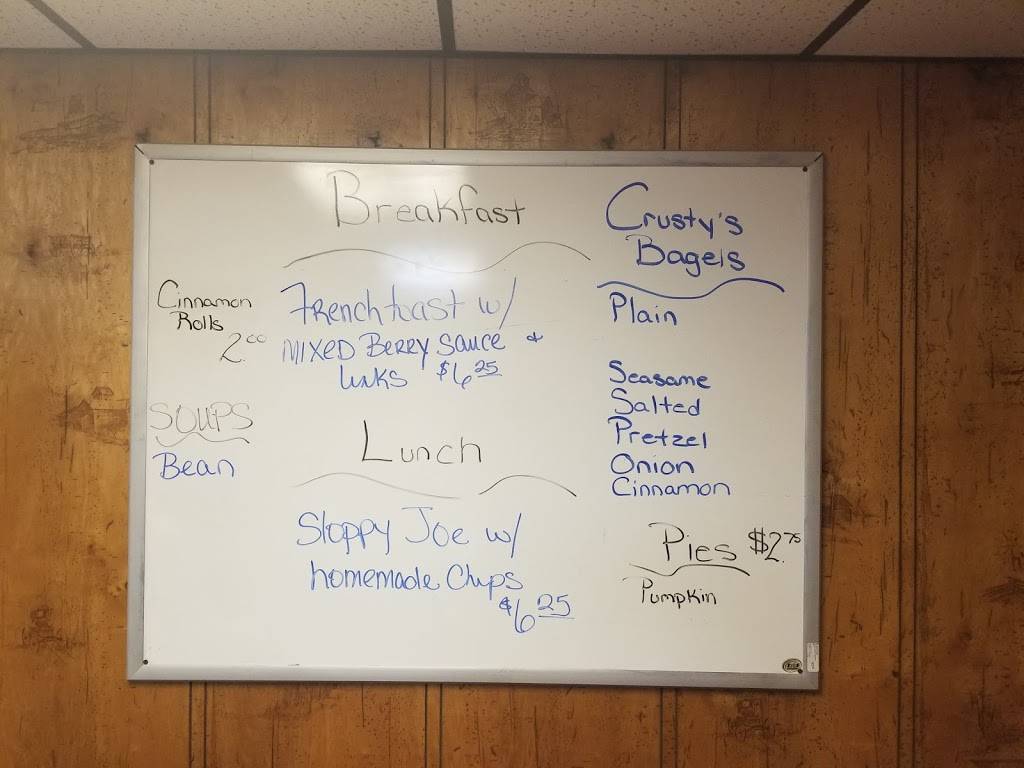 Breakfast
Cinnamon
Rolls
2.00
Frenchtoast w/
MIXED BERRY SAUCE &
links $6 25
SOUPS
Bean
Lunch
Sloppy Joe w/
homemade Chips
$6 25
Crusty's
Bagels
Plain
Seasame
Salted
Pretzel
Onion
Cinnamon
Pies $2.75
Pumpkin